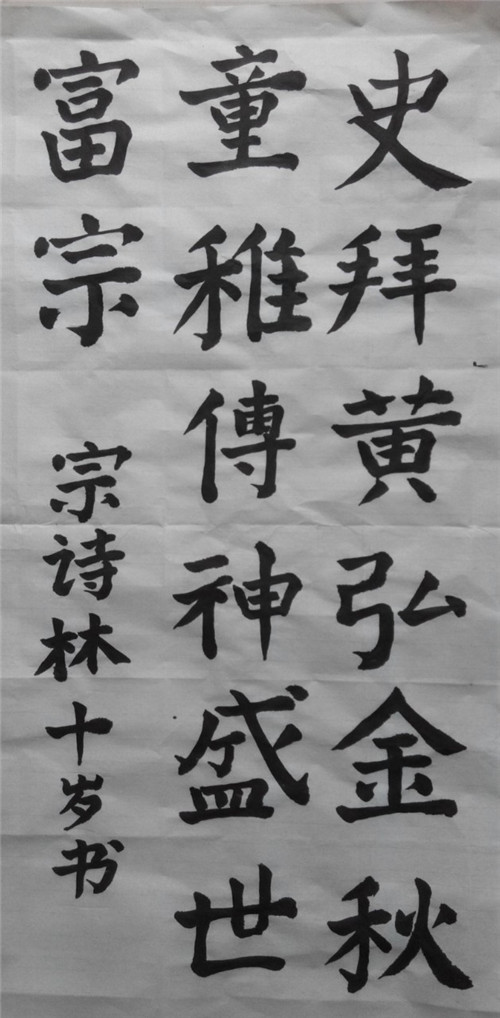 史拜黄弘金秋
童稚傳神盛世
富宗
宗诗林十岁书